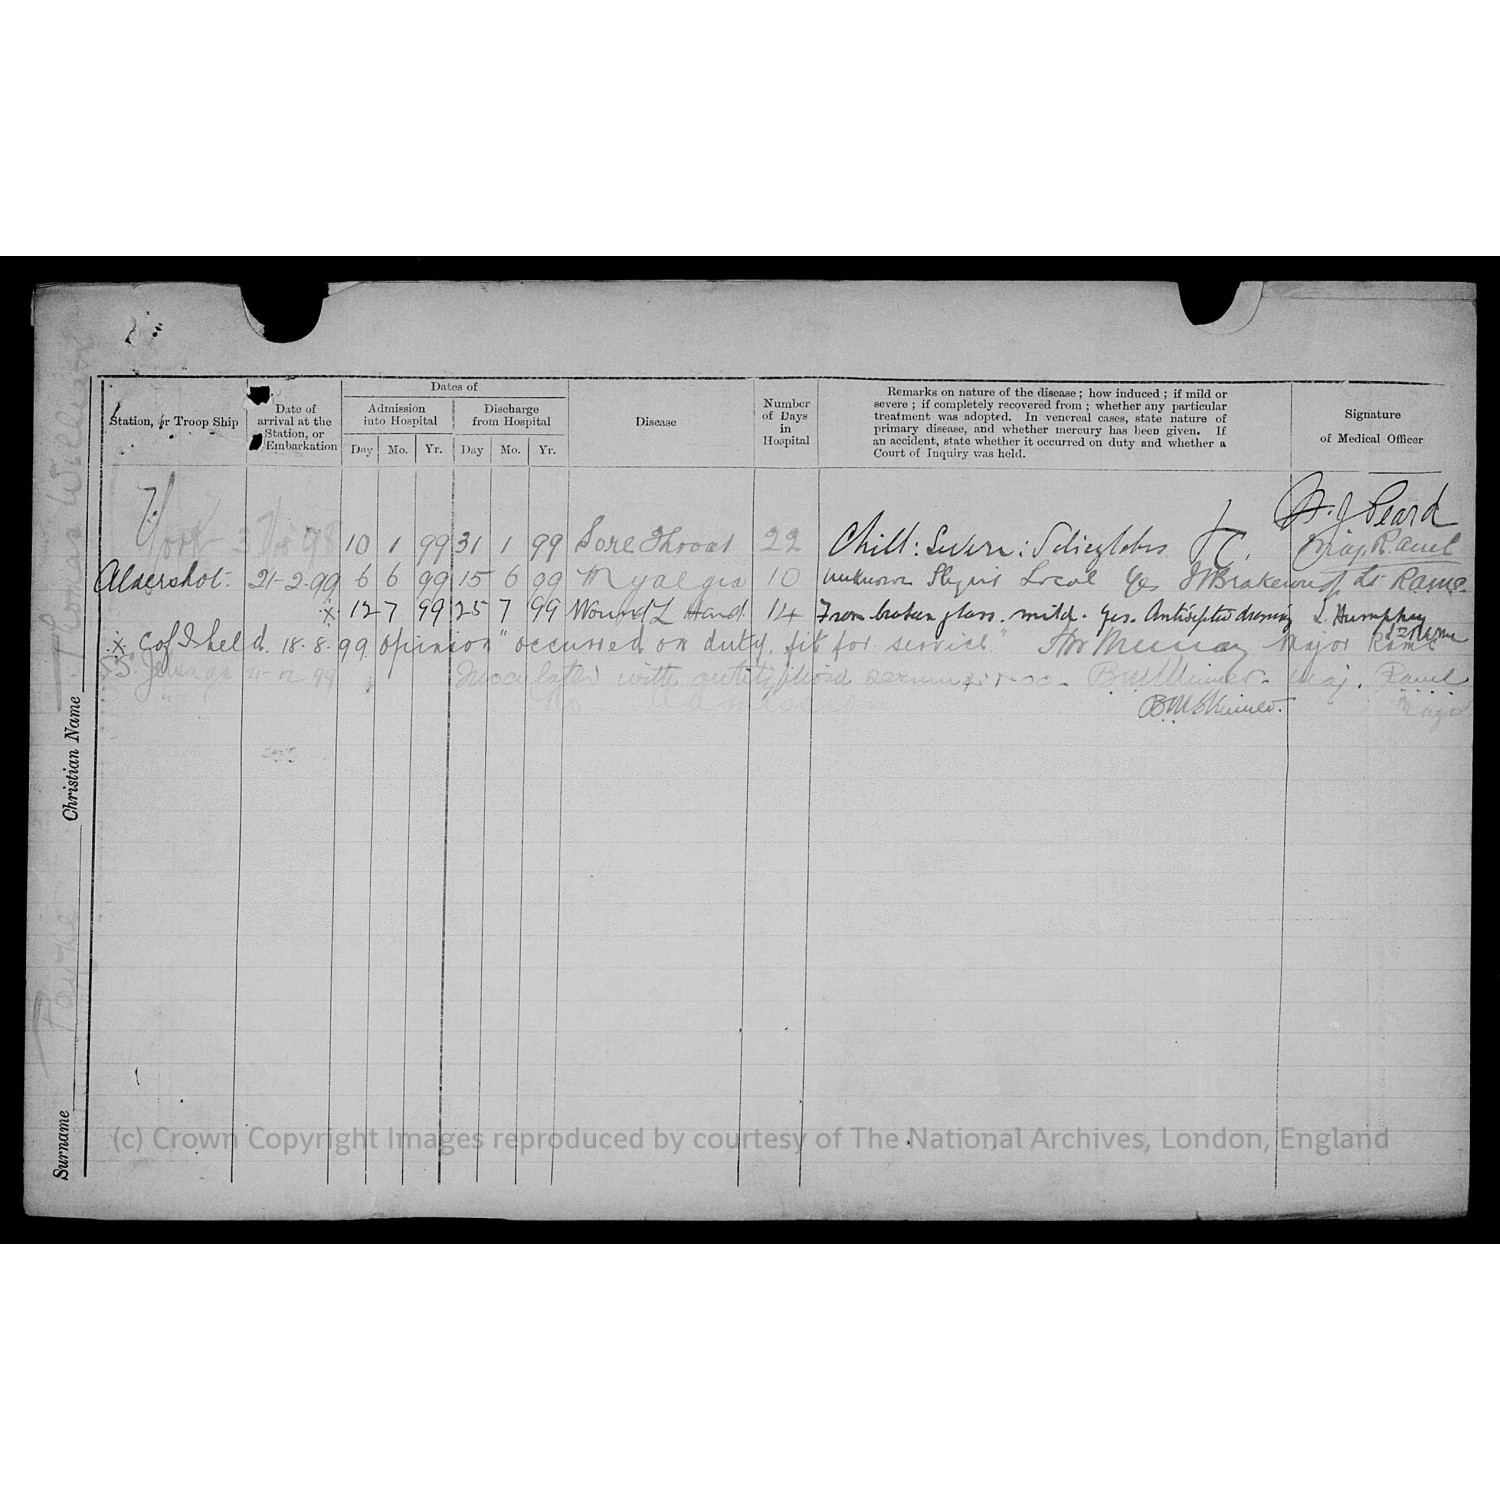 Dates of
Station, or Troop Ship
Date of
arrival at the
Station, or
Embarkation
Admission
into Hospital
Discharge
from Hospital
Day Mo. Yr. Day Mo. Yr.
Disease
Number
of Days
in
Hospital
Remarks on nature of the disease ; how induced ; if mild or
severe ; if completely recovered from ; whether any particular
treatment was adopted. In venereal cases, state nature of
primary disease, and whether mercury has been given. If
an accident, state whether it occurred on duty and whether a
Court of Inquiry was held.
Signature
of Medical Officer
York 98 10 1 99 31 1 99 Sore Throat 22 Chill: Severe: Peard
Aldershot 21-2-99 6 6 99 15 6 99 Myalgia 10 unknown Slight Local Yes Lt RAMC
x 12 7 99 25 7 99 Wound L Hand 14 From broken glass. mild. Yes. Antiseptic dressing L. Humphry
x C of I held. 18.8.99 opinion "occurred on duty, fit for service" Murray Major RAMC
SS. 99 Inoculated with antityphoid serum Maj.
Major
Surname
Christian Name Thomas William
(c) Crown Copyright Images reproduced by courtesy of The National Archives, London, England